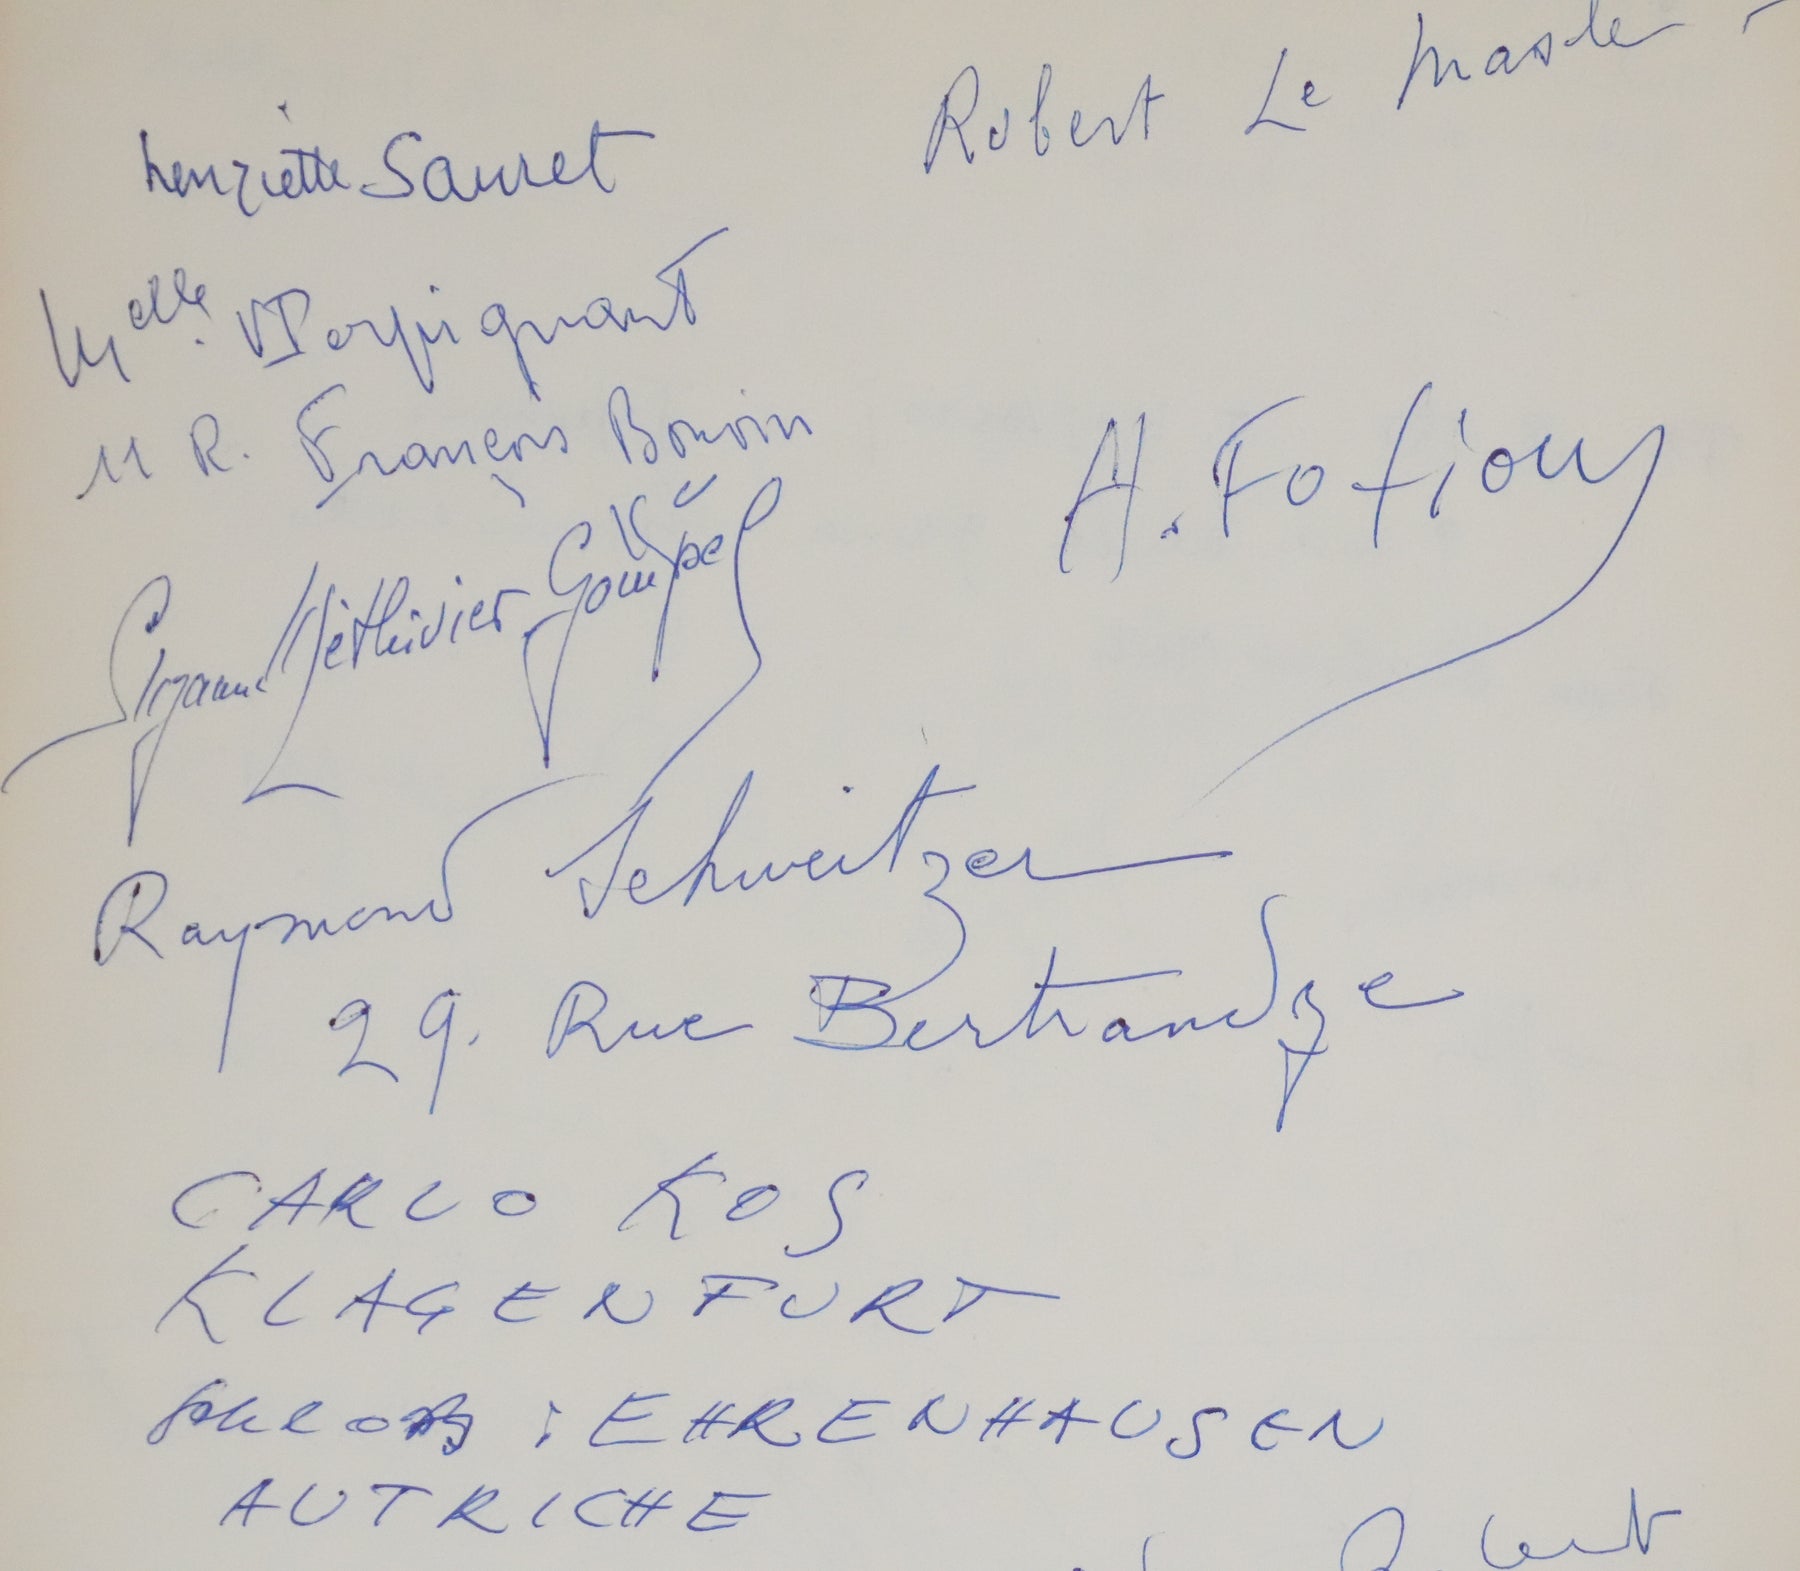 Robert Le Masle
henriette Sauret
Melle. V Perpignant
11 R. François Bonvin
A. Fotiou
Suzanne Méthivier Gompel
Raymond Schweitzer
29. Rue Bertrand 7e
CARLO KOS
KLAGENFURT
Schloß : EHRENHAUSEN
AUTRICHE